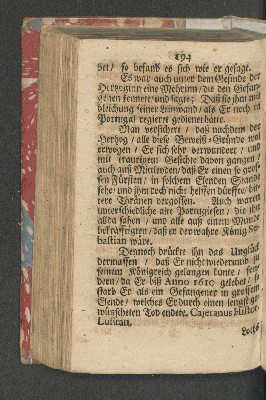 194
det / so befand es sich wie er gesagt.
Es war auch unter dem Gesinde der
Hertzoginn eine Mohrinn / die den Gefan-
genen kennete / und sagte; Daß sie ihm auf
bleichung seiner Leinwand / als Er noch in
Portugal regieret gedienet hätte.
Man versichert / daß nachdem der
Hertzog / alle diese Beweiß-Gründe wol
erwogen / Er sich sehr verwundert / und
mit traurigem Gesichte davon gangen /
auch auß Mittleyden / daß Er einen so gros-
sen Fürsten / in solchem Elenden Stande
sehe / und ihm doch nicht helffen dürffte / bit-
tere Thränen vergossen. Auch waren
unterschiedliche alte Portugiesen / die ihn
allda sahen / und alle auß einem Munde
bekräfftigten / daß er der wahre König Se-
bastian wäre.
Dennoch drückte ihn das Unglück
dermassen / daß Er nicht wiederumb zu
seinem Königreich gelangen kunte / son-
dern / da Er biß Anno 1610 gelebet / so
starb Er als ein Gefangener in grossem
Elende / welches Er durch einen längst ge-
wünscheten Tod endete. Cajetanus Histor.
Lusitan.